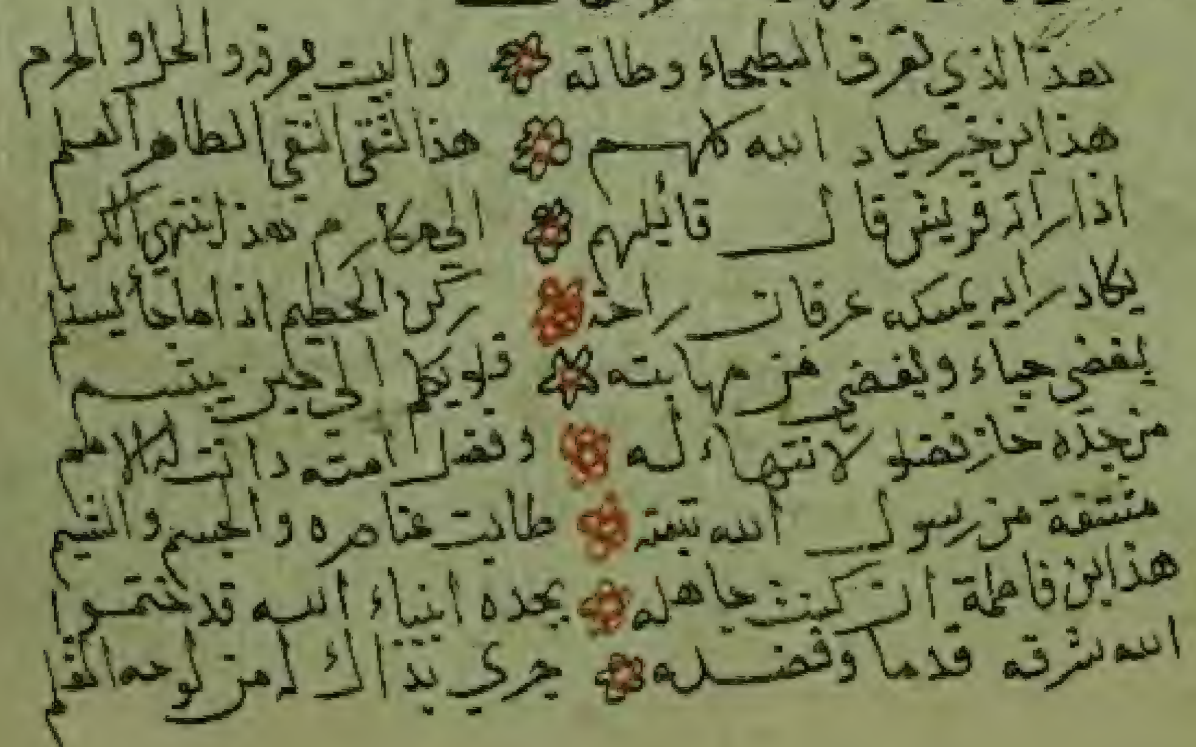 هذا الذي تعرف البطحاء وطاته والبيت يعرفه والحل والحرم
هذا ابن خير عباد الله كلهم هذا التقي النقي الطاهر العلم
اذا راته قريش قال قائلهم الى مكارم هذا ينتهي الكرم
يكاد يمسكه عرفان راحته ركن الحطيم اذا ما جا يستلم
يغضي حياء ويغضي من مهابته الى حين يبتسم
من جده حاز فضلو لا انتهاء له وفضل امته دانت له الامم
منشقة من رسول الله نبعته طابت عناصره والجسم والشيم
هذا ابن فاطمة ان كنت جاهله بجده انبياء الله قد ختموا
الله شرفه قدما وفضله جرى بذاك له من لوحه القلم